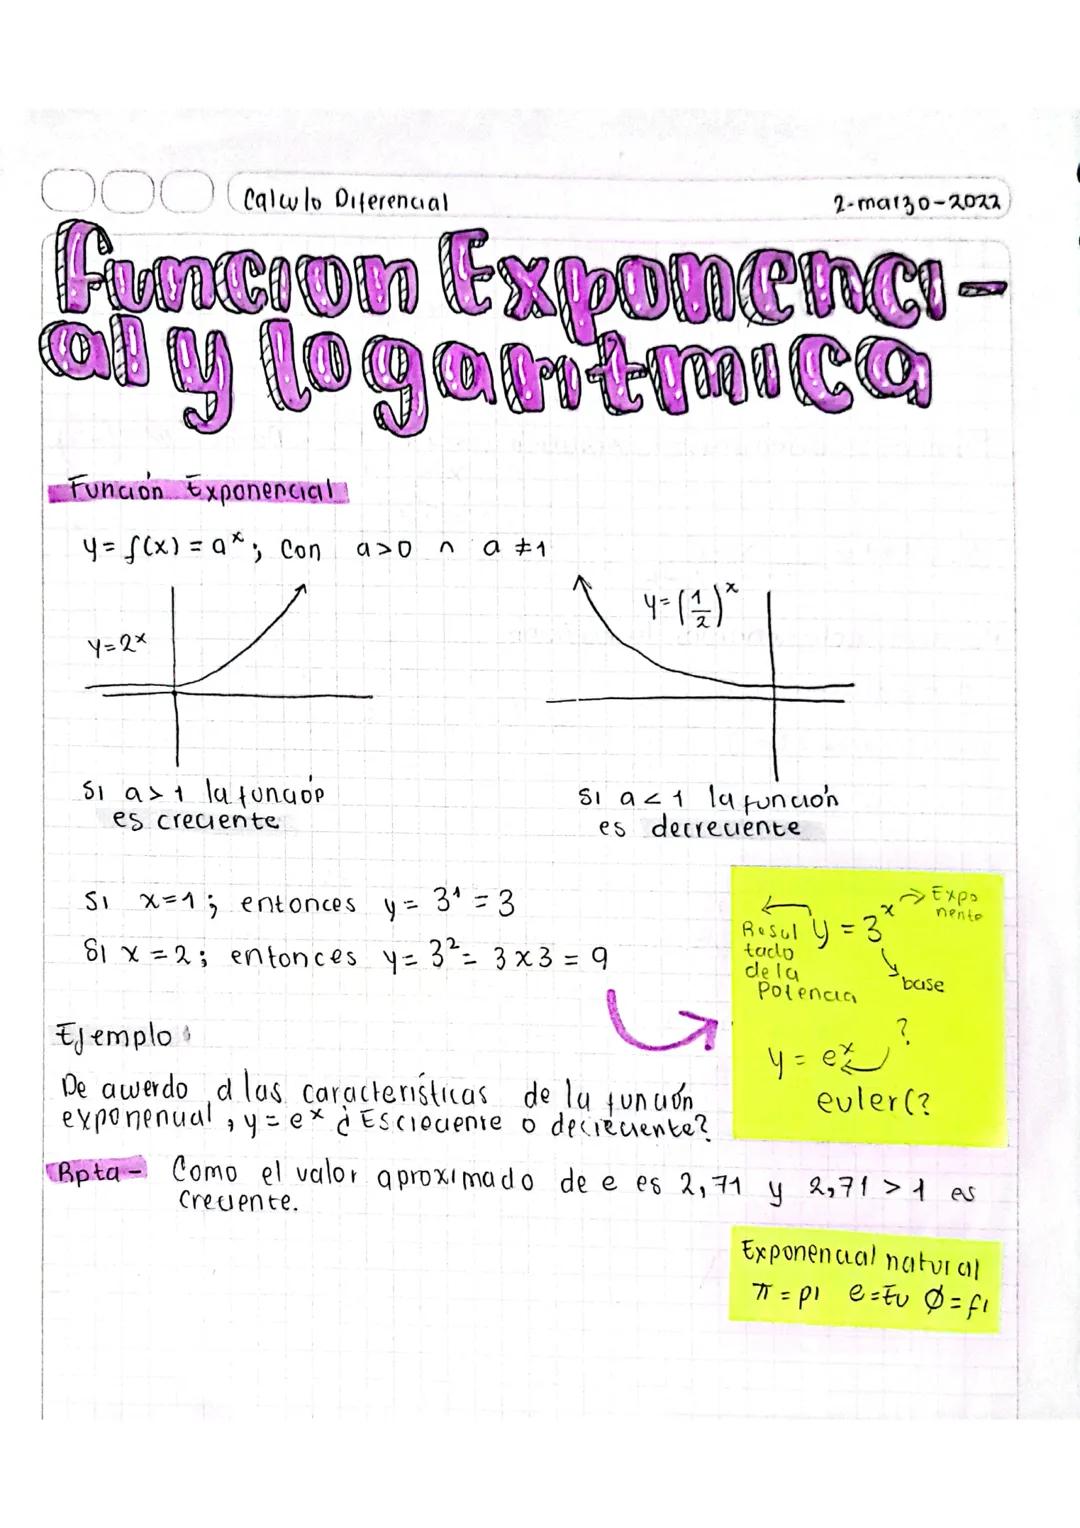 Calculo Diferencial
2-marzo-2022
Funcion Exponenci-
al y logaritmica
Función Exponencial
y = f(x) = aˣ; con a>0 ∩ a ≠1
y=2ˣ
y=(1/2)ˣ
Si a>1 la función
es creciente
Si a<1 la función
es decreciente
Si x=1; entonces y = 3¹ = 3
Si x = 2; entonces y= 3² = 3x3 = 9
Resul
tado
de la
Potencia
y = 3ˣ
Expo
nente
base
y = eˣ ?
euler(?
Ejemplo:
De acuerdo a las características de la función
exponencial, y = eˣ ¿Es creciente o decreciente?
Rpta- Como el valor aproximado de e es 2,71 y 2,71 > 1 es
creciente.
Exponencial natural
π = pi e=Eu Ø=fi